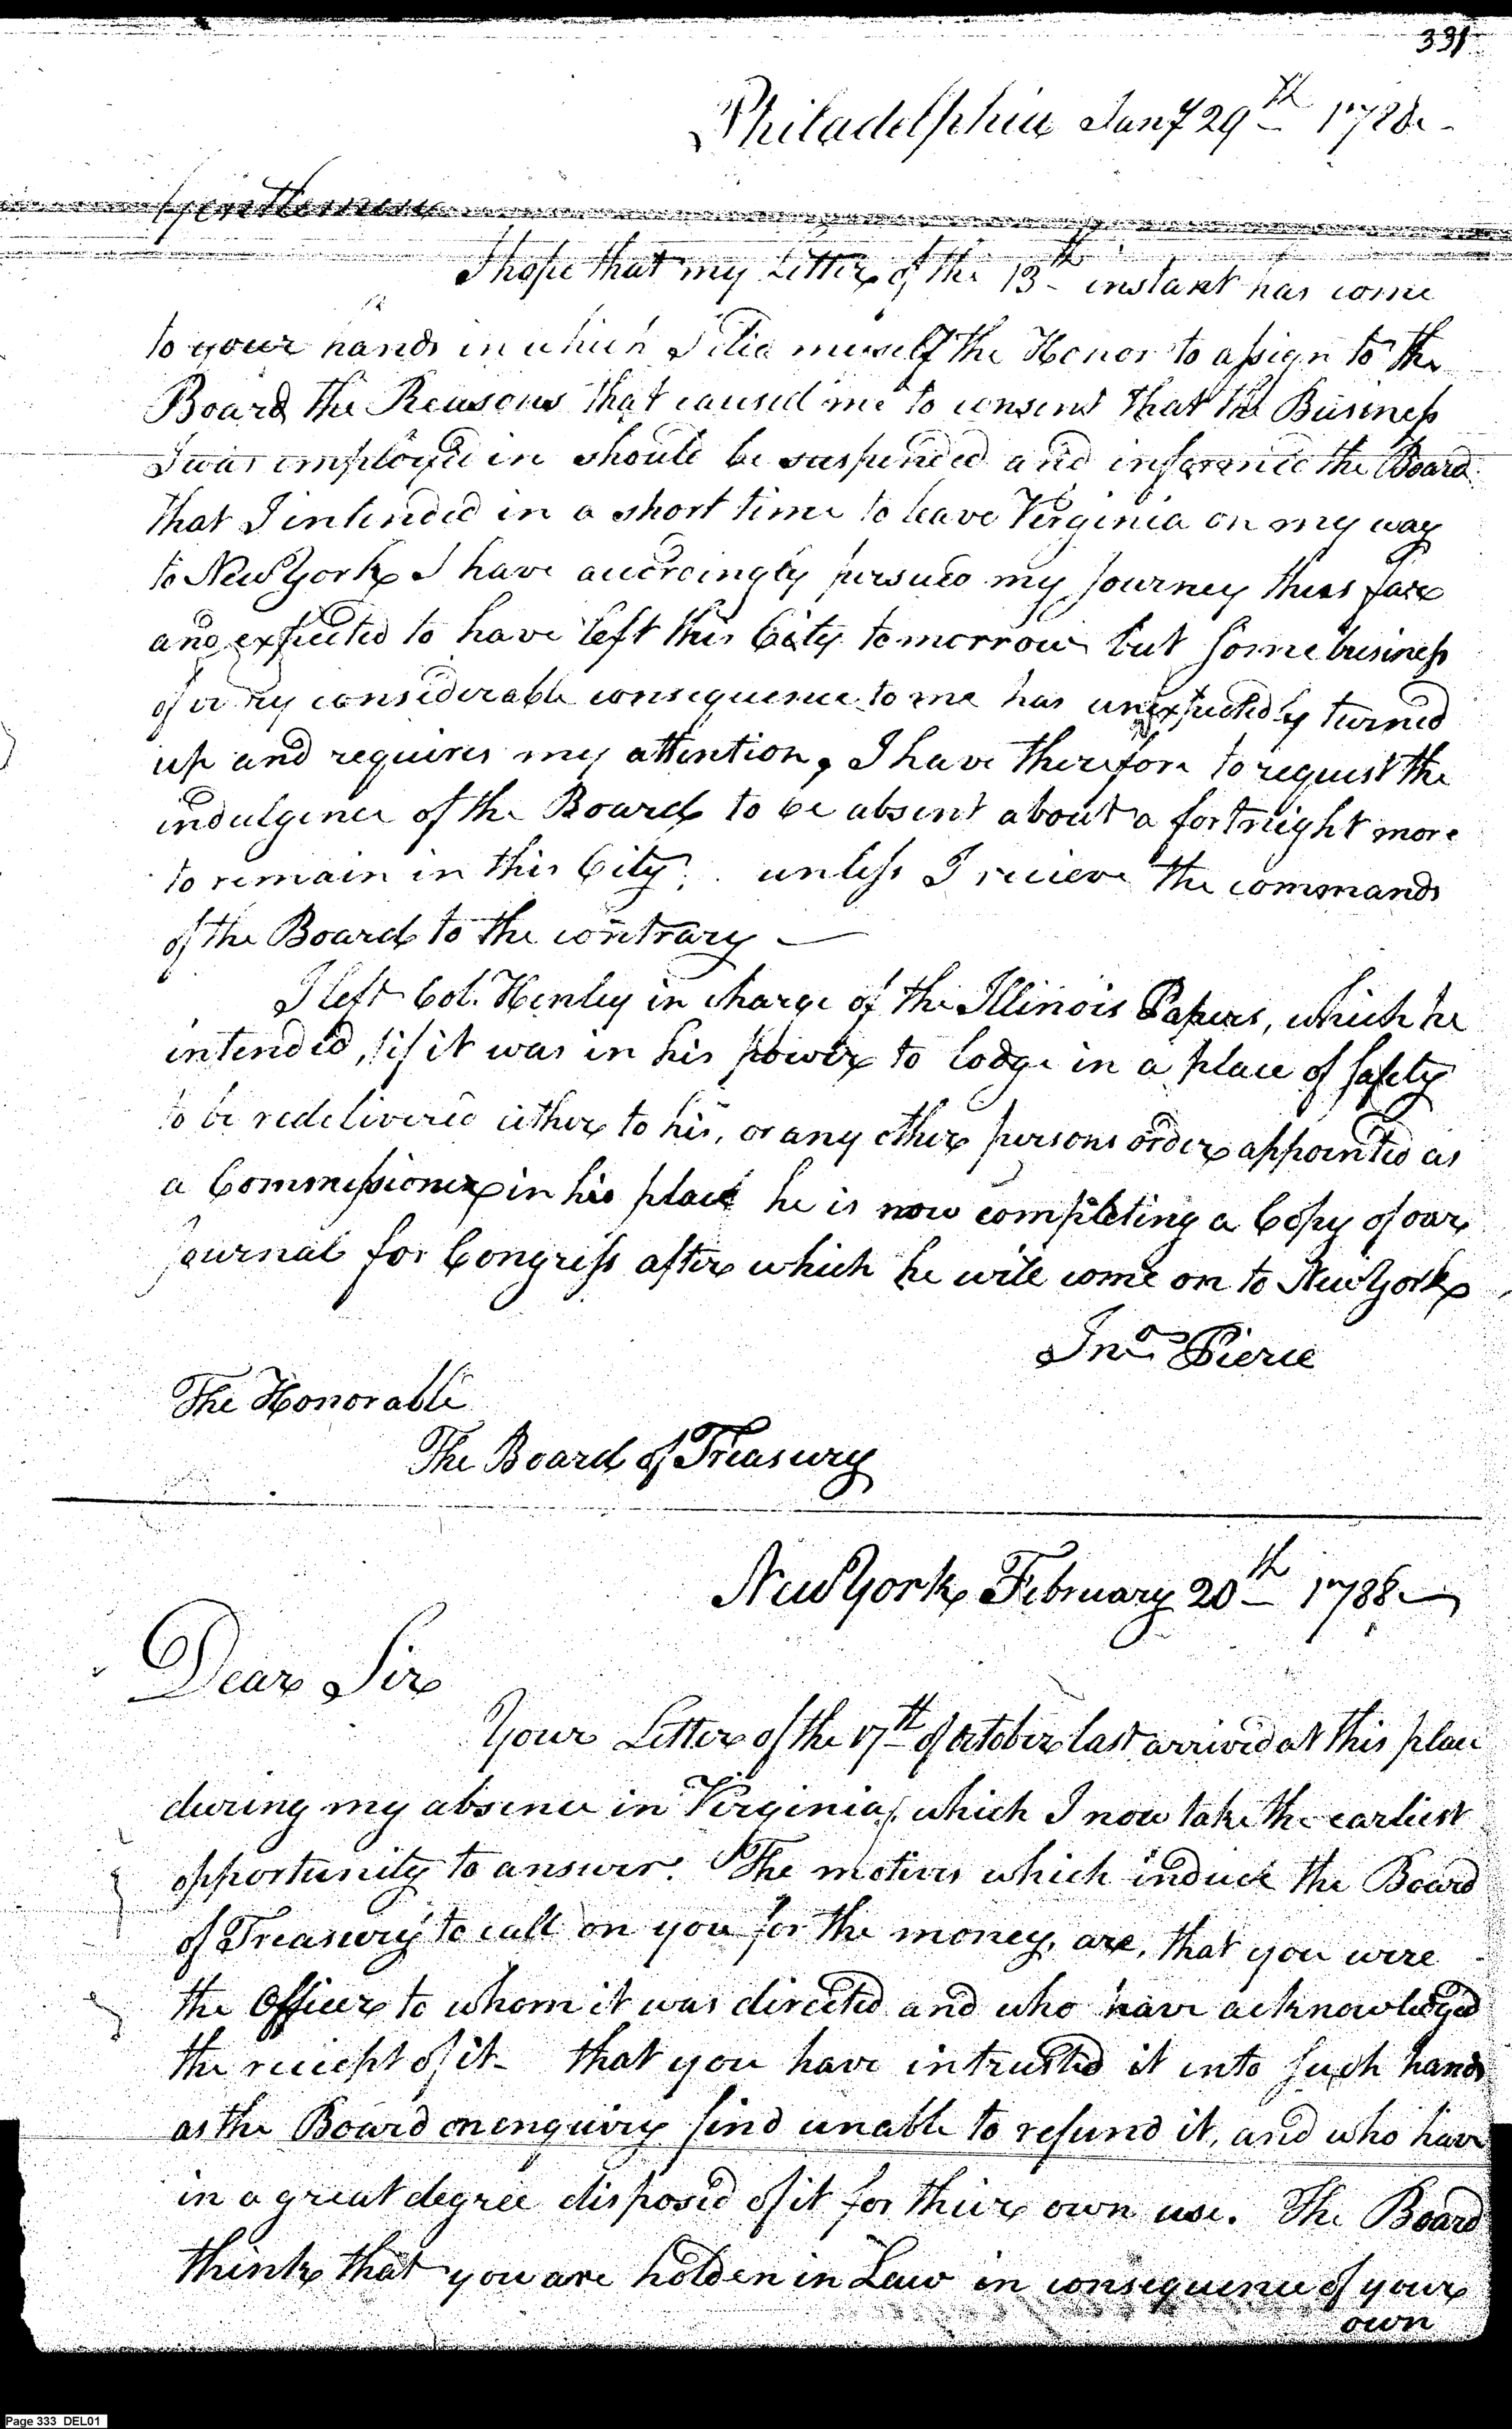 331
Philadelphia Jany 29th 1788
Gentlemen
I hope that my Letter of the 13th instant has come
to your hands in which I did myself the Honor to assign to the
Board the Reasons that caused me to consent that the Business
I was employed in should be suspended and informed the Board
that I intended in a short time to leave Virginia on my way
to New York I have accordingly persued my Journey thus far
and expected to have left this City tomorrow but some business
of very considerable consequence to me has unexpectedly turned
up and requires my attention, I have therefore to request the
indulgence of the Board to be absent about a fortnight more
to remain in this City. unless I recieve the commands
of the Board to the contrary —
I left Col. Henley in charge of the Illinois Papers, which he
intended, if it was in his power to lodge in a place of safety
to be redelivered either to his, or any other persons order appointed as
a Commissioner in his place he is now completing a Copy of our
Journal for Congress after which he will come on to New York
Jno Pierce
The Honorable
The Board of Treasury
New York February 20th 1788
Dear Sir
Your Letter of the 17th of October last arrived at this place
during my absence in Virginia, which I now take the earliest
opportunity to answer. The motives which induce the Board
of Treasury to call on you for the money, are, that you were
the Officer to whom it was directed and who have acknowledged
the reciept of it - that you have intrusted it into such hands
as the Board on enquiry find unable to refund it, and who have
in a great degree disposed of it for their own use. The Board
think that you are holden in Law in consequence of your
own
Page 333 DEL01